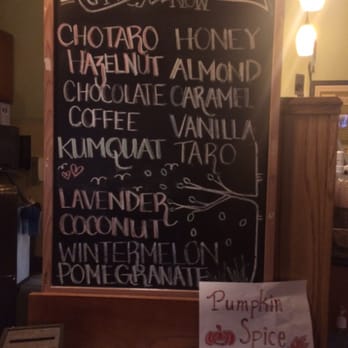 NOW
CHOTARO HONEY
HAZELNUT ALMOND
CHOCOLATE CARAMEL
COFFEE VANILLA
KUMQUAT TARO
LAVENDER
COCONUT
WINTERMELON
POMEGRANATE
Pumpkin
Spice